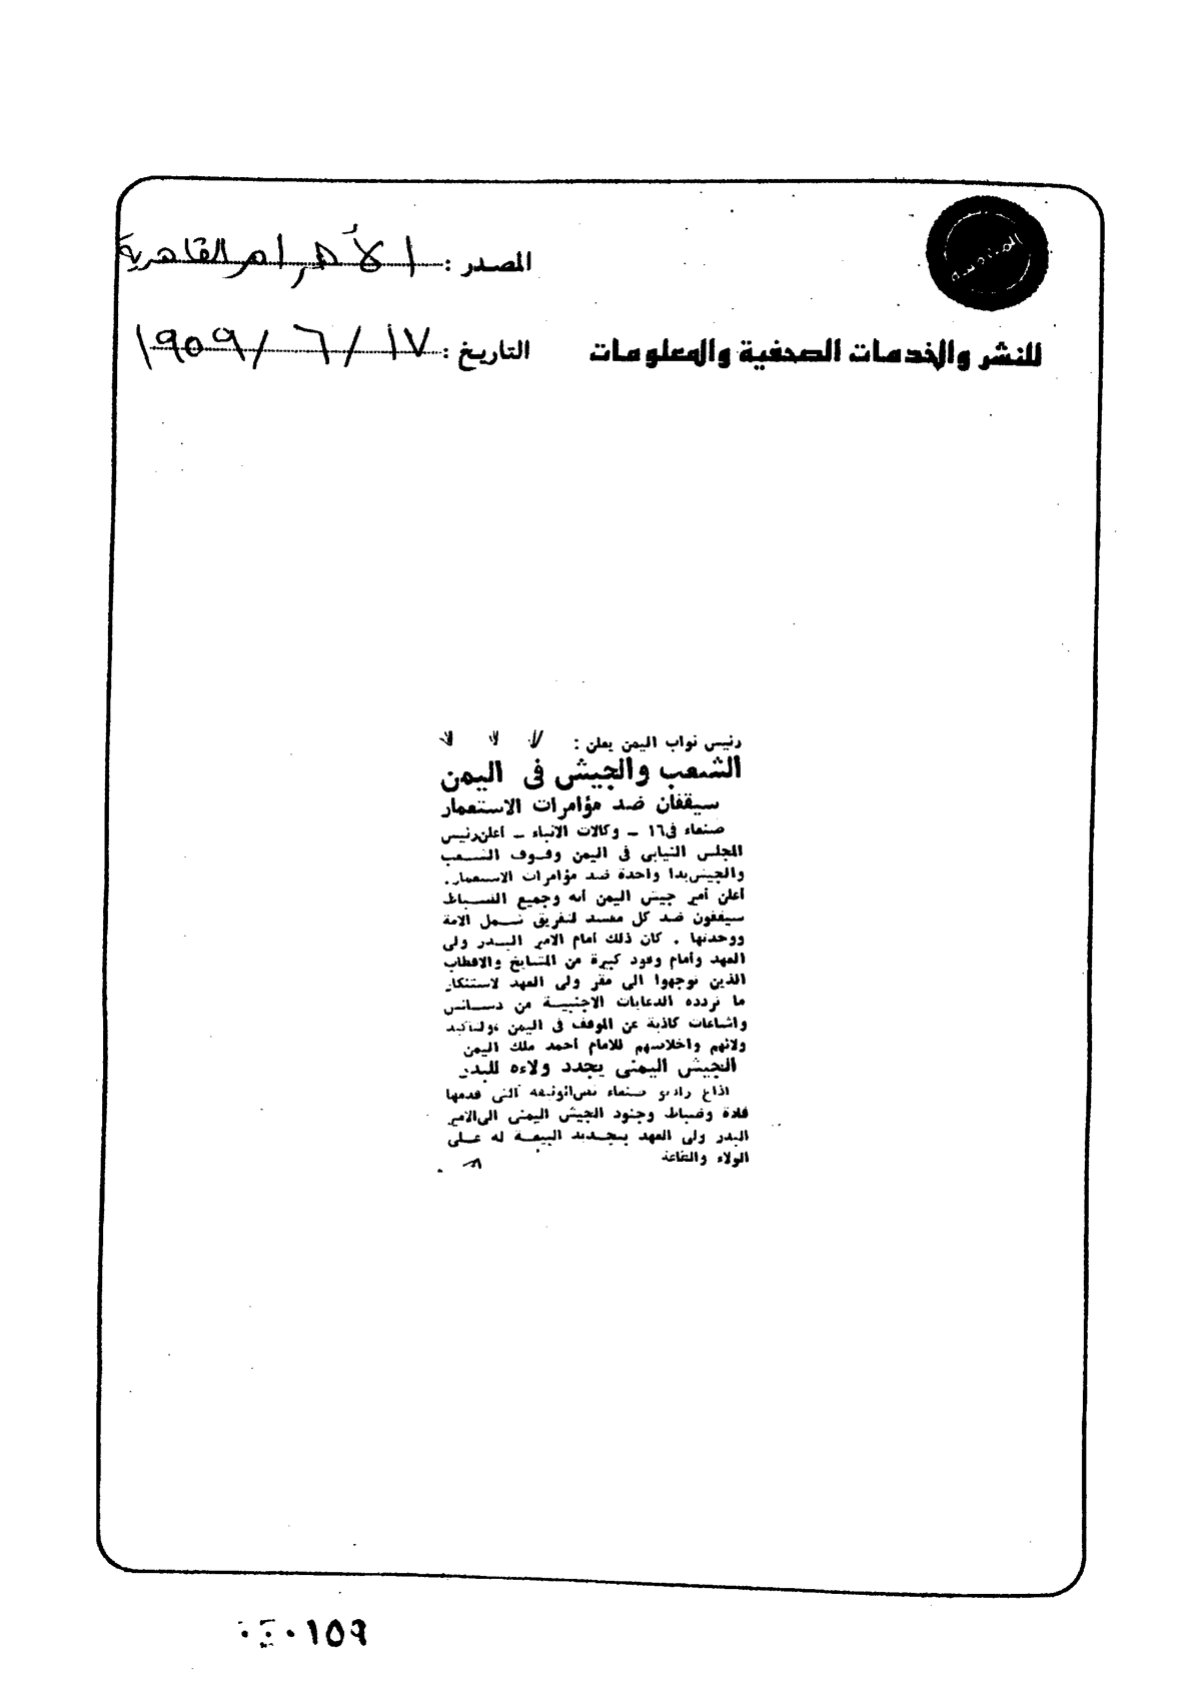 المصدر : الأهرام القاهرية
للنشر والخدمات الصحفية والمعلومات
التاريخ : ١٧ / ٦ / ١٩٥٩
رئيس نواب اليمن يعلن :
الشعب والجيش فى اليمن
سيقفان ضد مؤامرات الاستعمار
صنعاء فى ١٦ ـ وكالات الانباء ـ اعلن رئيس
المجلس النيابى فى اليمن وقوف الشعب
والجيش يدا واحدة ضد مؤامرات الاستعمار.
اعلن أمير جيش اليمن أنه وجميع الضباط
سيقفون ضد كل مفسد لتفريق شمل الامة
ووحدتها . كان ذلك أمام الامير البدر ولى
العهد وأمام وفود كبيرة من المشايخ والاقطاب
الذين توجهوا الى مقر ولى العهد لاستنكار
ما تردده الدعايات الاجنبية من دسائس
واشاعات كاذبة عن الموقف فى اليمن ولتأكيد
ولائهم واخلاصهم للامام أحمد ملك اليمن
الجيش اليمنى يجدد ولاءه للبدر
اذاع راديو صنعاء نص الوثيقة التى قدمها
قادة وضباط وجنود الجيش اليمنى الى الامير
البدر ولى العهد بتجديد البيعة له على
الولاء والطاعة
٠١٥٩